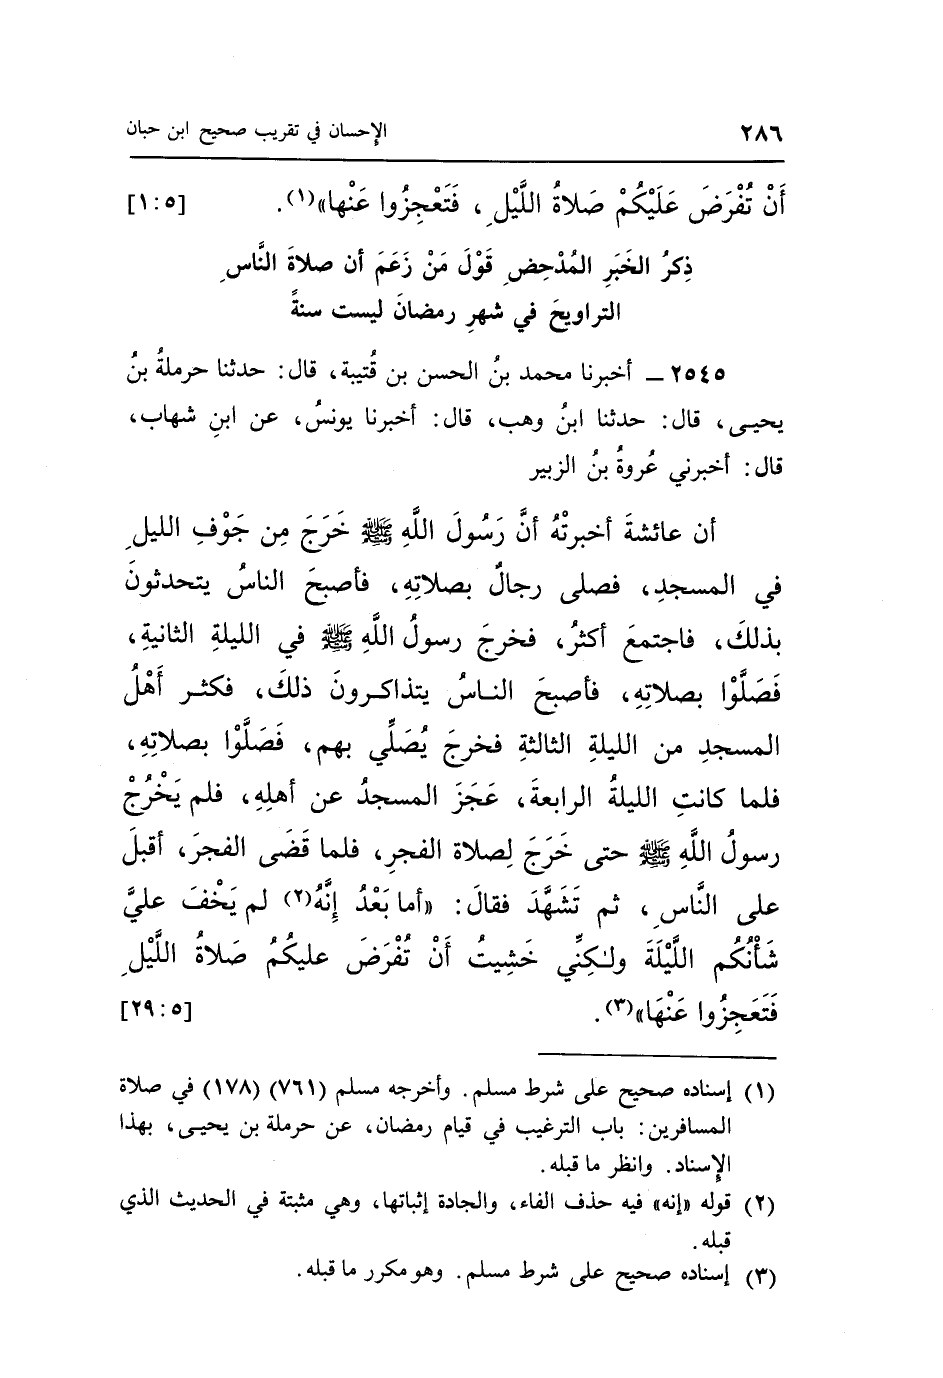 ٢٨٦ الإحسان في تقريب صحيح ابن حبان
أَنْ تُفْرَضَ عَلَيْكُمْ صَلاةُ اللَّيْلِ ، فَتَعْجِزُوا عَنْها»(١). [١:٥]
ذِكرُ الخَبَرِ المُدْحِضِ قَوْلَ مَنْ زَعَمَ أن صلاةَ النَّاسِ
التراويحَ في شهرِ رمضانَ ليست سنةً
٢٥٤٥ ــ أخبرنا محمد بنُ الحسن بن قُتيبة، قال: حدثنا حرملةُ بنُ
يحيـى، قال: حدثنا ابنُ وهب، قال: أخبرنا يونسُ، عن ابنِ شهاب،
قال: أخبرني عُروةُ بنُ الزبير
أن عائشةَ أخبرتْهُ أنَّ رَسُولَ اللَّهِ ﷺ خَرَجَ مِن جَوْفِ الليلِ
في المسجدِ، فصلى رجالٌ بصلاتِهِ، فأصبحَ الناسُ يتحدثونَ
بذلكَ، فاجتمعَ أكثرُ، فخرجَ رسولُ اللَّهِ ﷺ في الليلةِ الثانيةِ،
فَصَلَّوْا بصلاتِهِ، فأصبحَ النـاسُ يتذاكـرونَ ذلكَ، فكثـر أَهْلُ
المسجدِ من الليلةِ الثالثةِ فخرجَ يُصَلِّي بهم، فَصَلَّوْا بصلاتِهِ،
فلما كانتِ الليلةُ الرابعةَ، عَجَزَ المسجدُ عن أهلِهِ، فلم يَخْرُجْ
رسولُ اللَّهِ ﷺ حتى خَرَجَ لِصلاة الفجرِ، فلما قَضَى الفجرَ، أقبلَ
على النَّاسِ، ثم تَشَهَّدَ فقالَ: «أما بَعْدُ إِنَّهُ(٢) لم يَخْفَ عليَّ
شَأْنُكُم اللَّيْلَةَ ولـٰكِنِّي خَشِيتُ أَنْ تُفْرَضَ عليكُمُ صَلاةُ اللَّيْلِ
فَتَعَجِزُوا عَنْهَا»(٣). [٢٩:٥]
(١) إسناده صحيح على شرط مسلم. وأخرجه مسلم (٧٦١) (١٧٨) في صلاة
المسافرين: باب الترغيب في قيام رمضان، عن حرملة بن يحيـى، بهذا
الإسناد. وانظر ما قبله.
(٢) قوله «إنه» فيه حذف الفاء، والجادة إثباتها، وهي مثبتة في الحديث الذي
قبله.
(٣) إسناده صحيح على شرط مسلم. وهو مكرر ما قبله.